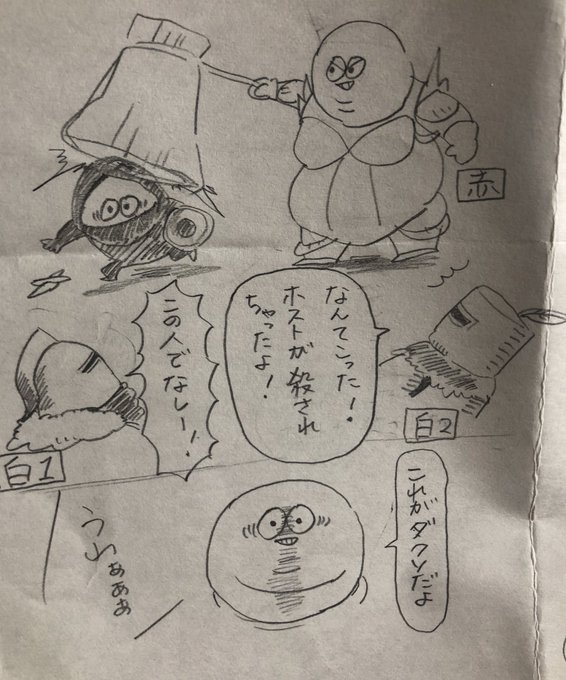 赤
なんてこった!
ホストが殺され
ちゃったよ!
この人でなしー!
白2
白1
これがダクソだよ
うわぁぁぁ